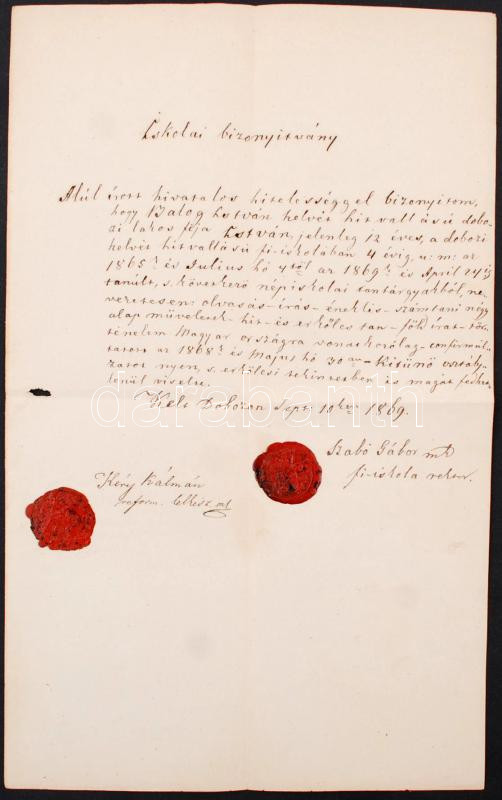 Iskolai bizonyitvány
Alúl irott hivatalos hitelességgel bizonyitom,
hogy Balog István helvét hitvallású dobo-
zi lakos fija István, jelenleg 12 éves, a dobozi
helvét hitvallású fi-iskolában 4 évig u: m: az
1865k év Julius hó 4től az 1869k év April 24ig
tanúlt, s következő népiskolai tantárgyakból, ne-
vezetesen: olvasás-irás-éneklés-számtani négy
alap műveletek-hit-és erkölcs tan-föld irat-tör-
ténelem Magyar országra vonatkozólag-confirmál-
tatott az 1868k év Majus hó 30án-kitünő osztály-
zatot nyert, s erkölcsi tekintetben is magát feddhe-
tlenül viselte.
Kelt Dobozon Sept: 10kén 1869.
Szabó Gábor mk
fi-iskola rector.
Kéry Kálmán
reform. lelkész mk
darabanth.com